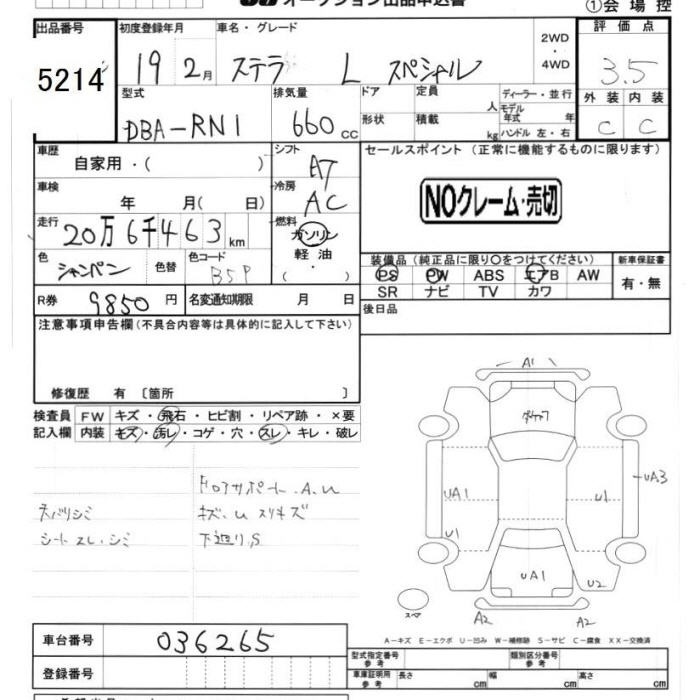 オークション出品申込書
①会場控
出品番号 5214
初度登録年月 19 2月
車名・グレード ステラ L スペシャル
2WD
・
4WD
評価点 3.5
外装 内装
C C
型式 DBA-RN1
排気量 660 cc
ドア
形状
定員 人
積載 kg
ディーラー・並行
モデル
年式 年
ハンドル 左・右
車歴 自家用・( )
シフト AT
車検 年 月( 日)
冷房 AC
走行 20万6千463 km
燃料 ガソリン
軽油
・
( )
色 シャンペン 色替 色コード B5P
R券 9850円 名変通知期限 月 日
セールスポイント(正常に機能するものに限ります)
NOクレーム・売切
装備品(純正品に限り○をつけてください)
PS PW ABS エアB AW
SR ナビ TV カワ
新車保証書
有・無
後日品
注意事項申告欄(不具合内容等は具体的に記入して下さい)
修復歴 有 〔箇所 〕
検査員 FW キズ・飛石・ヒビ割・リペア跡・×要
記入欄 内装 キズ・汚レ・コゲ・穴・スレ・キレ・破レ
ドロアサポート A.U
天バリシミ キズ、U スリキズ
シートスレ.シミ 下廻り,S
A1
UA1
U1
U1
UA3
UA1
U2
A2
A2
スペア
A-キズ E-エクボ U-凹み W-補修跡 S-サビ C-腐食 XX-交換済
車台番号 036265
登録番号
型式指定番号
参考
類別区分番号
参考
車庫証明用
参考
長さ cm
幅 cm
高さ cm